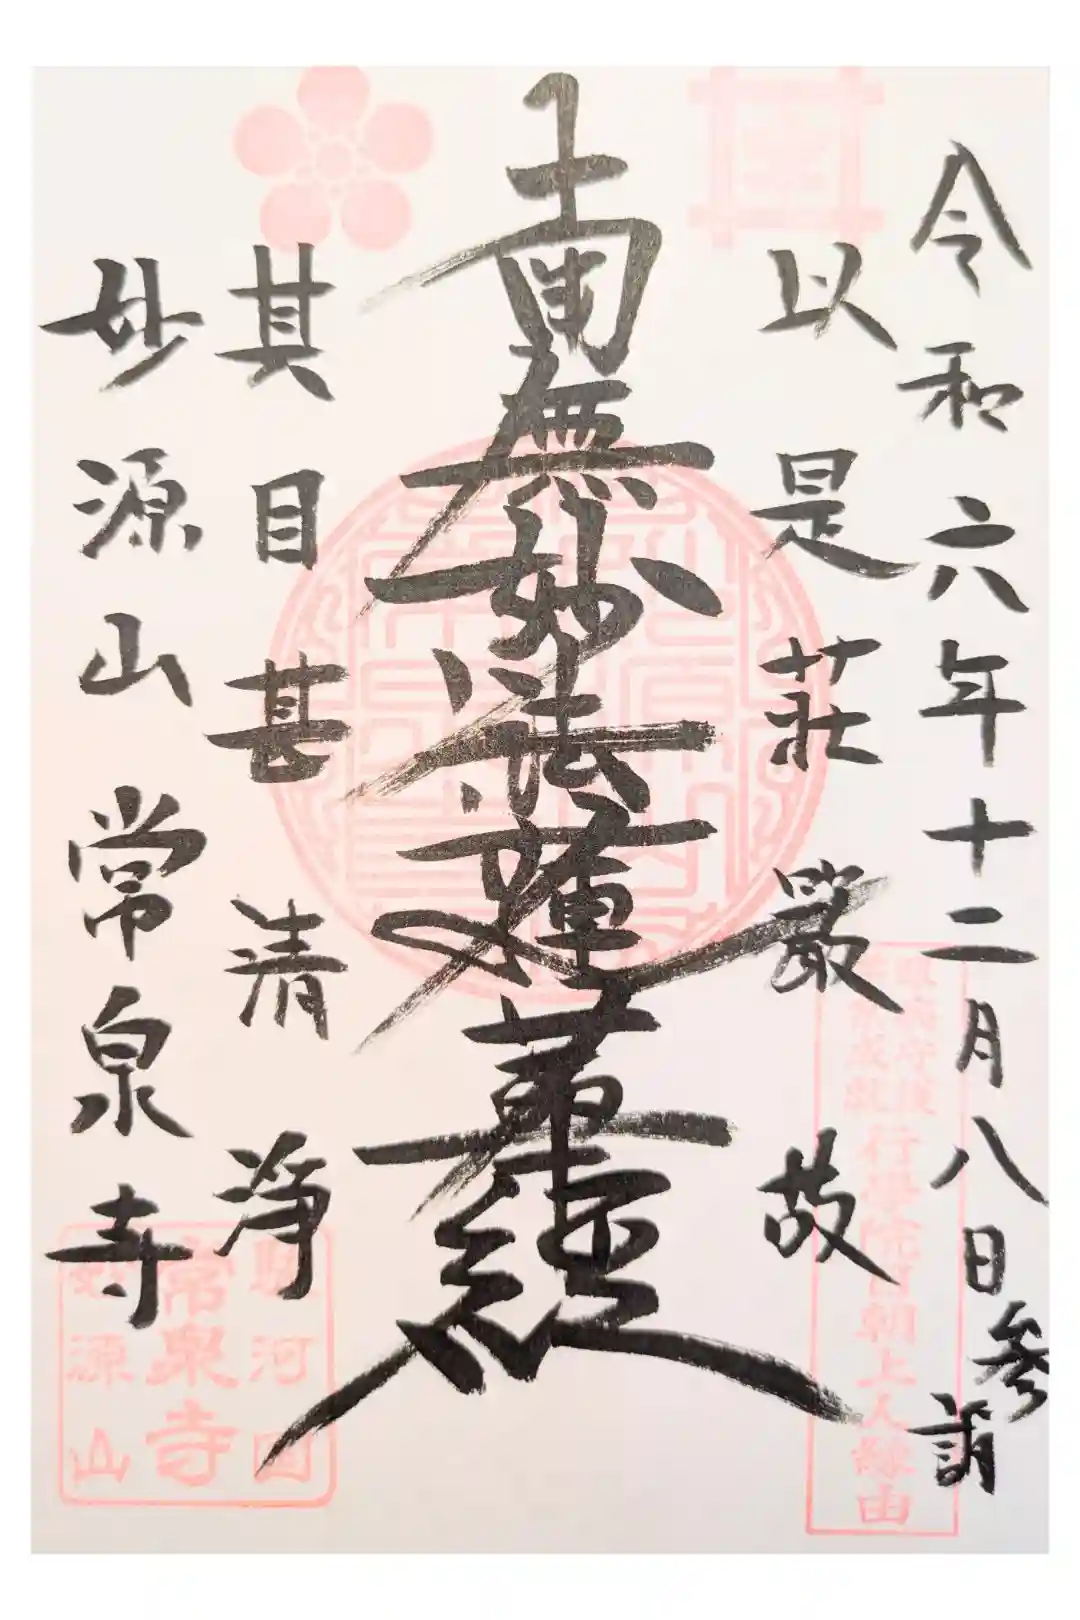 令和六年十二月八日参詣
以是荘厳故
南無妙法蓮華経
其目甚清浄
妙源山常泉寺
行學院日朝上人縁由
駿河国
常泉寺
妙源山